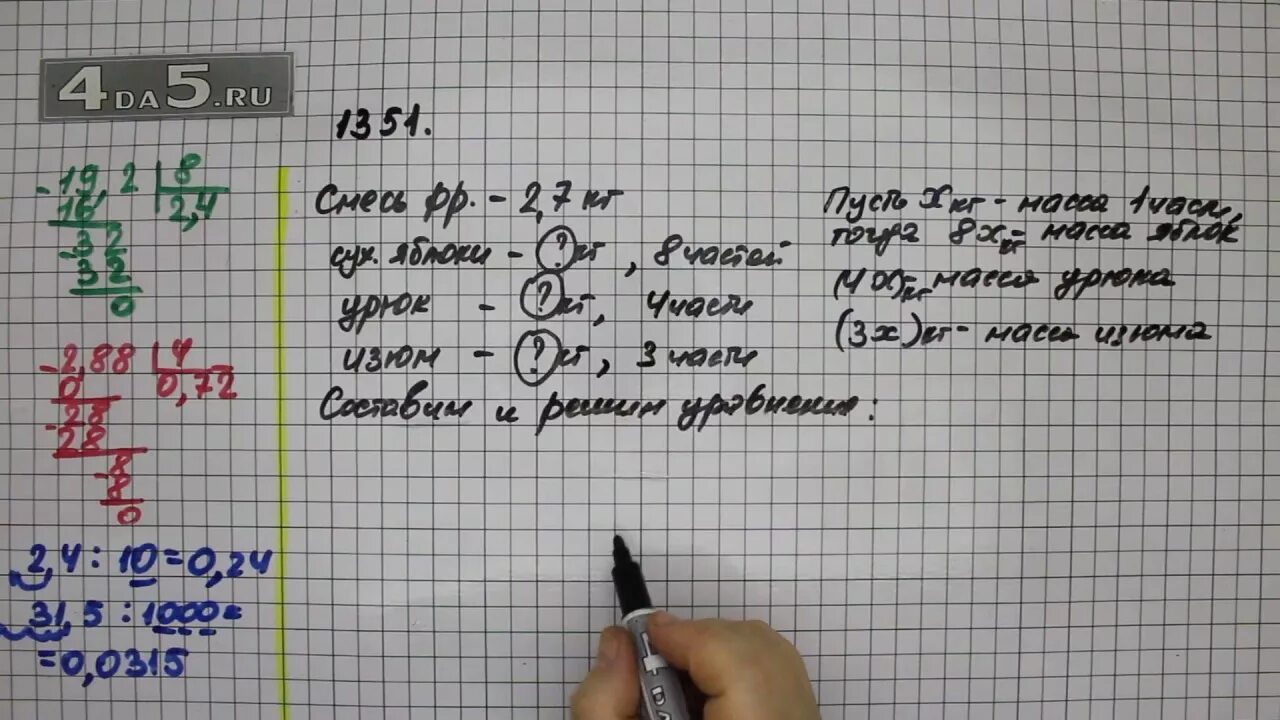 4DA5.RU
1351.
-19,2 | 8
16 2,4
-32
32
0
-2,88 | 4
0 0,72
-28
28
-8
8
0
2,4 : 10 = 0,24
31,5 : 1000 =
= 0,0315
Смесь фр. - 2,7 кг
сух. яблоки - ? кг, 8 частей
урюк - ? кг, 4 части
изюм - ? кг, 3 части
Составим и решим уравнение:
Пусть x кг - масса 1 части,
тогда 8x кг - масса яблок
(4x) кг - масса урюка
(3x) кг - масса изюма